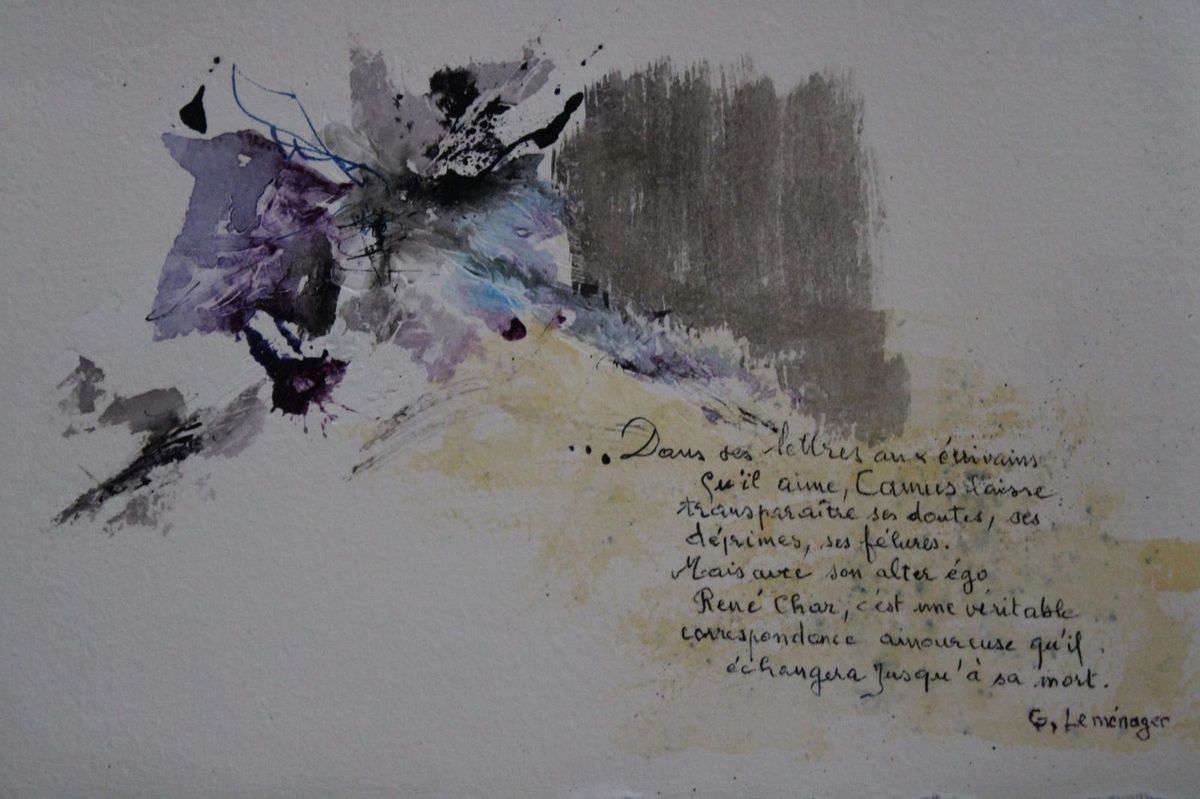 ...Dans ses lettres aux écrivains
Qu'il aime, Camus laisse
transparaître ses doutes, ses
déprimes, ses fêlures.
Mais avec son alter égo
René Char, c'est une véritable
correspondance amoureuse qu'il
échangera jusqu'à sa mort.
G. Leménager